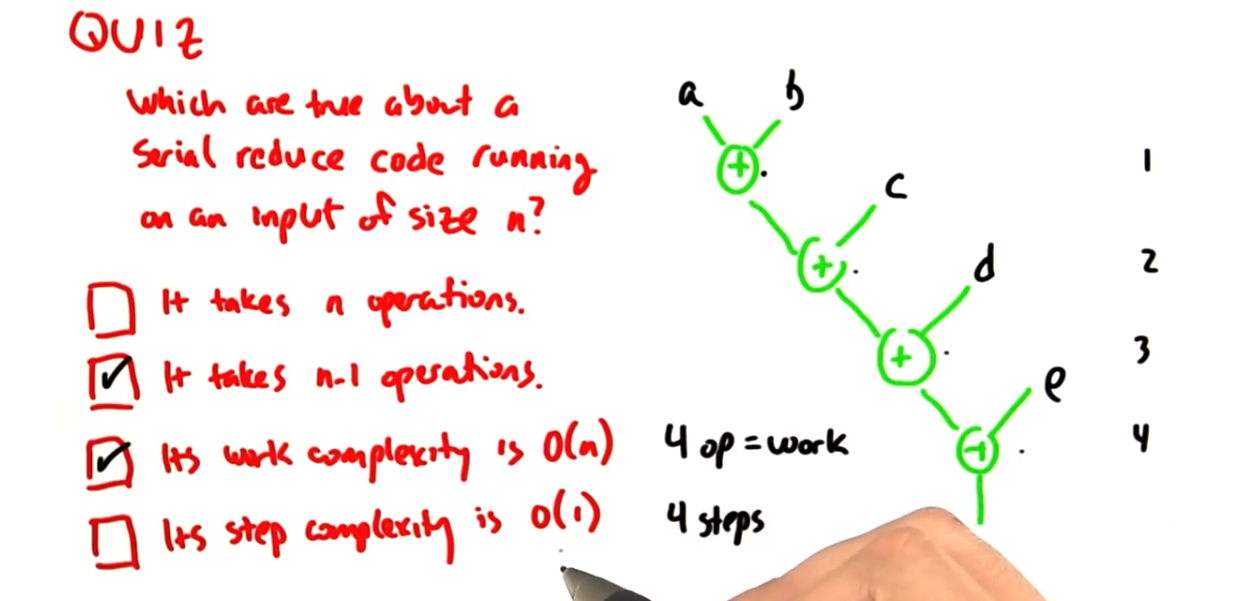 QUIZ
Which are true about a
Serial reduce code running
on an input of size n?
It takes n operations.
It takes n-1 operations.
Its work complexity is O(n)
Its step complexity is O(1)
4 op = work
4 steps
a b
+
c
+
d
+
e
+
1
2
3
4